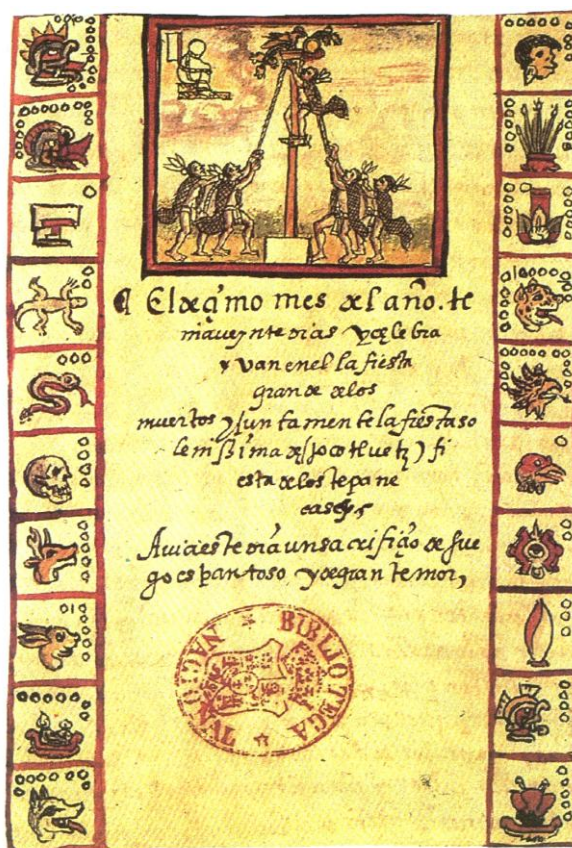 El deçimo mes del año. te
nia veynte dias y çelebra
van en el la fiesta
grande de los
muertos y juntamente la fiesta so
lemnissima de (xocotluetz) fi
esta de los tepane
casetts
Avia este dia un sacrifiçio de fue
go espantoso y de gran temor,
BIBLIOTECA
NACIONAL